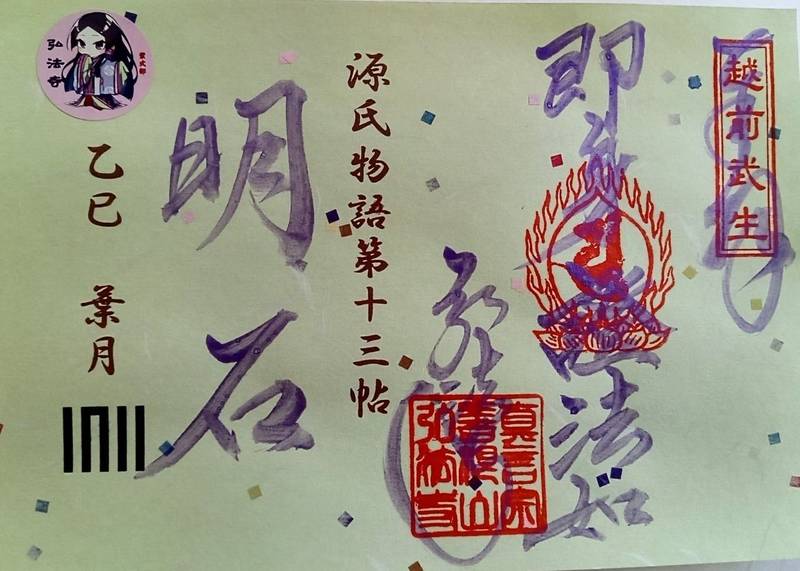 越前武生
即
法如
真言宗
弘法寺
源氏物語第十三帖
明石
紫式部
弘法寺
乙巳 葉月